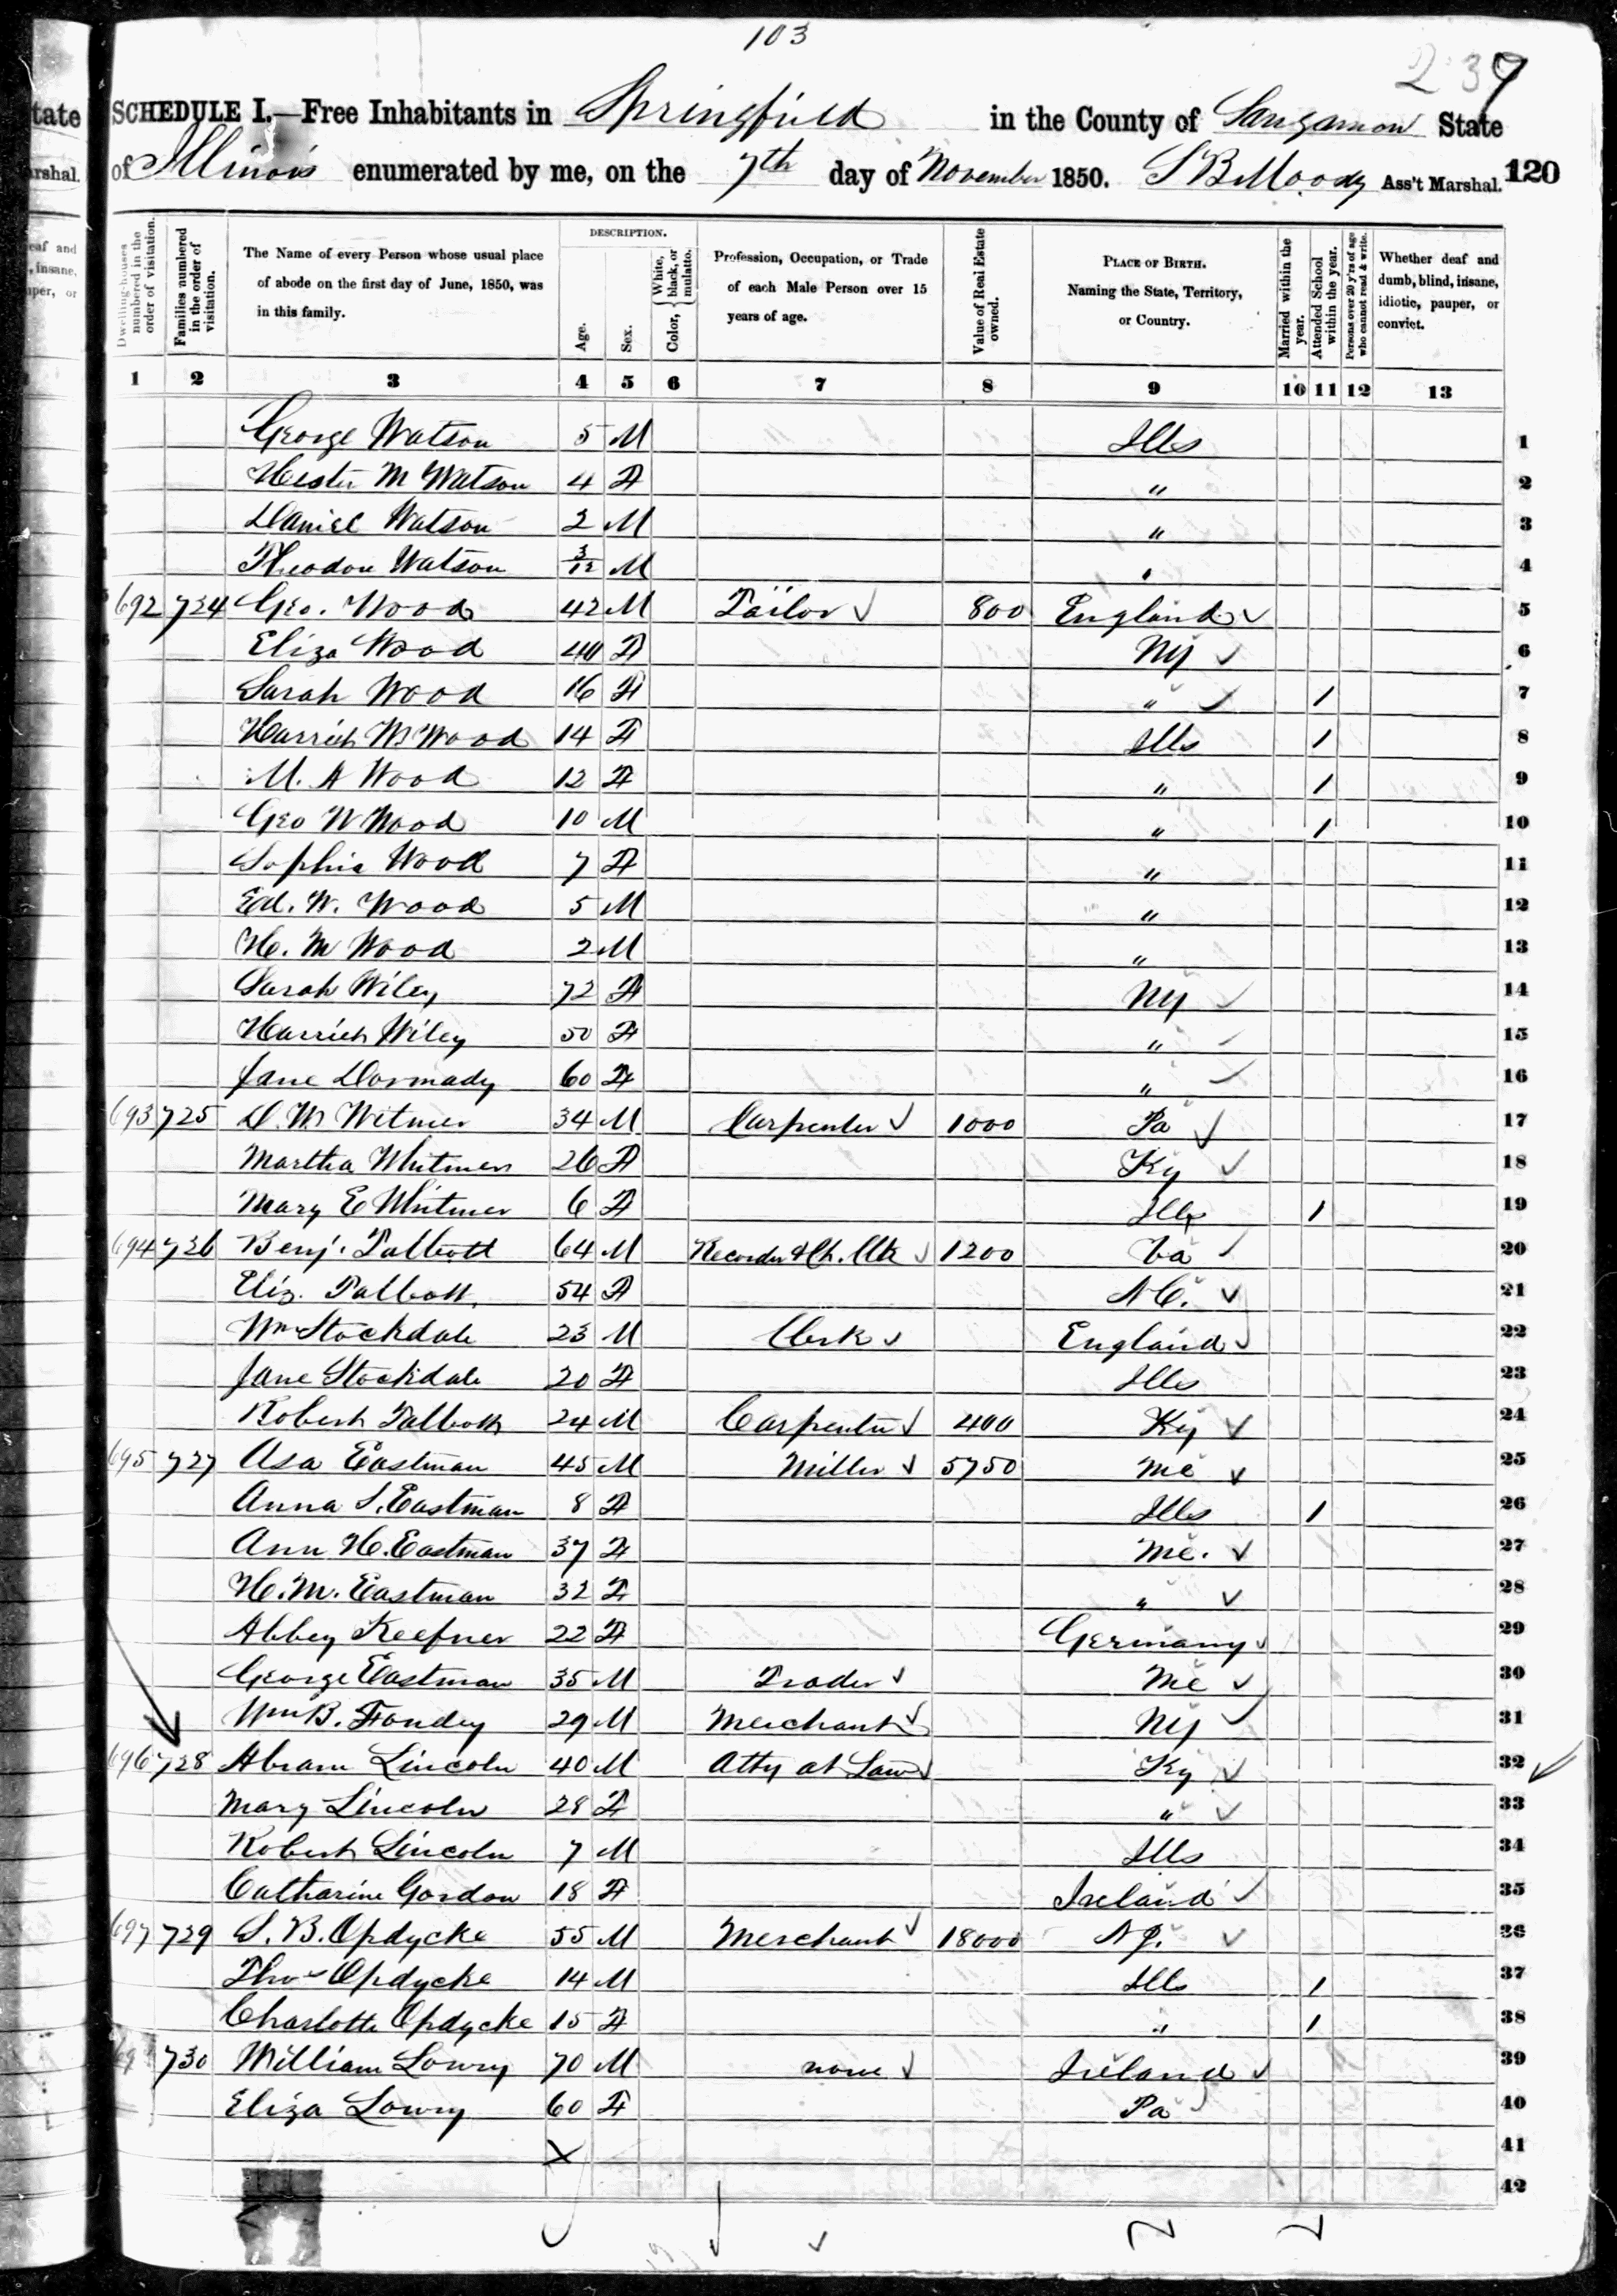 103
237
SCHEDULE I.—Free Inhabitants in Springfield in the County of Sangamon State
of Illinois enumerated by me, on the 7th day of November 1850. S B Moody Ass't Marshal. 120
DESCRIPTION.
Dwelling-houses numbered in the order of visitation.
Families numbered in the order of visitation.
The Name of every Person whose usual place of abode on the first day of June, 1850, was in this family.
Age.
Sex.
Color, { White, black, or mulatto.
Profession, Occupation, or Trade of each Male Person over 15 years of age.
Value of Real Estate owned.
PLACE OF BIRTH. Naming the State, Territory, or Country.
Married within the year.
Attended School within the year.
Persons over 20 y'rs of age who cannot read & write.
Whether deaf and dumb, blind, insane, idiotic, pauper, or convict.
1 2 3 4 5 6 7 8 9 10 11 12 13
George Watson 5 M Ills 1
Hester M Watson 4 F " 2
Daniel Watson 2 M " 3
Theodore Watson 3/12 M " 4
692 724 Geo. Wood 42 M Tailor 800 England 5
Eliza Wood 40 F NY 6
Sarah Wood 16 F " 1 7
Harriet M Wood 14 F Ills 1 8
M. A Wood 12 F " 1 9
Geo W Wood 10 M " 1 10
Sophia Wood 7 F " 11
Ed. W. Wood 5 M " 12
H. M Wood 2 M " 13
Sarah Wiley 72 F NY 14
Harriet Wiley 50 F " 15
Jane Dormady 60 F " 16
693 725 D. M Witmer 34 M Carpenter 1000 Pa 17
Martha Whitmer 26 F Ky 18
Mary E Whitmer 6 F Ills 1 19
694 726 Benj. Talbott 64 M Recorder & Ch. Clk 1200 Va 20
Eliz. Talbott 54 F N C. 21
Wm Stockdale 23 M Clerk England 22
Jane Stockdale 20 F Ills 23
Robert Talbott 24 M Carpenter 400 Ky 24
695 727 Asa Eastman 45 M Miller 5750 Me 25
Anna S. Eastman 8 F Ills 1 26
Ann H. Eastman 37 F Me. 27
H. M. Eastman 32 F " 28
Abbey Keefner 22 F Germany 29
George Eastman 35 M Trader Me 30
Wm B. Fondey 29 M Merchant NY 31
696 728 Abram Lincoln 40 M Atty at Law Ky 32
Mary Lincoln 28 F " 33
Robert Lincoln 7 M Ills 34
Catharine Gordon 18 F Ireland 35
697 729 S. B. Opdycke 55 M Merchant 18000 N J. 36
Thos Opdycke 14 M Ills 1 37
Charlotte Opdycke 15 F " 1 38
730 William Lowry 70 M none Ireland 39
Eliza Lowry 60 F Pa 40
X 41
42